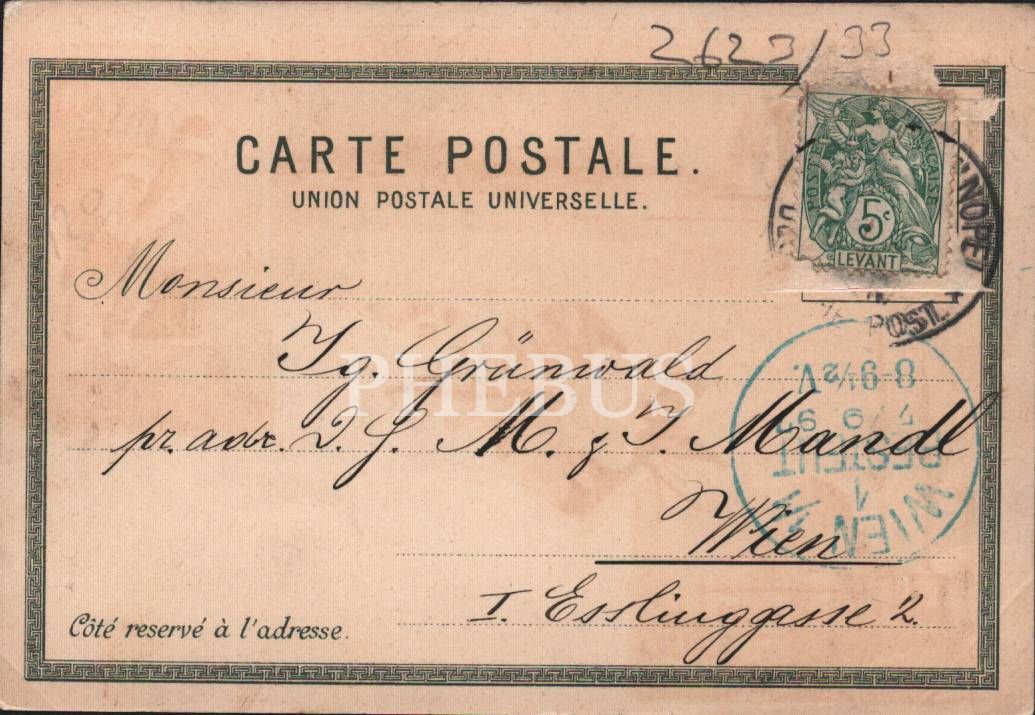 2623/33
CARTE POSTALE.
UNION POSTALE UNIVERSELLE.
POSTE FRANÇAISE
5c
LEVANT
NOPEL
POST.
Monsieur
Ig. Grünwald
PHEBUS
pr. adr. M. & J. Mandl
Wien
I. Esslinggasse 2.
8-9½V.
7/9
BESTELLT
1
WIEN
Côté reservé à l'adresse.